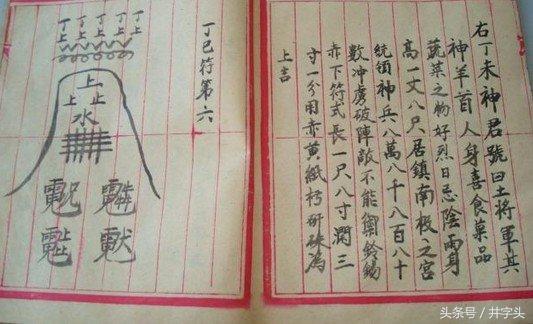 右丁未神君號曰土將軍其
神羊首人身喜食菓品
蔬菜之物好烈日忌陰雨身
高一丈八尺居鎮南极之宮
統領神兵八萬八千八百八十
數冲虜破陣敵不能禦鈴錫
赤下符式長一尺八寸濶三
寸一分用赤黃紙朽研硃為
上吉
丁巳符第六
丁丁丁丁丁
上上上上上
上
上止
水
头条号 / 井字头